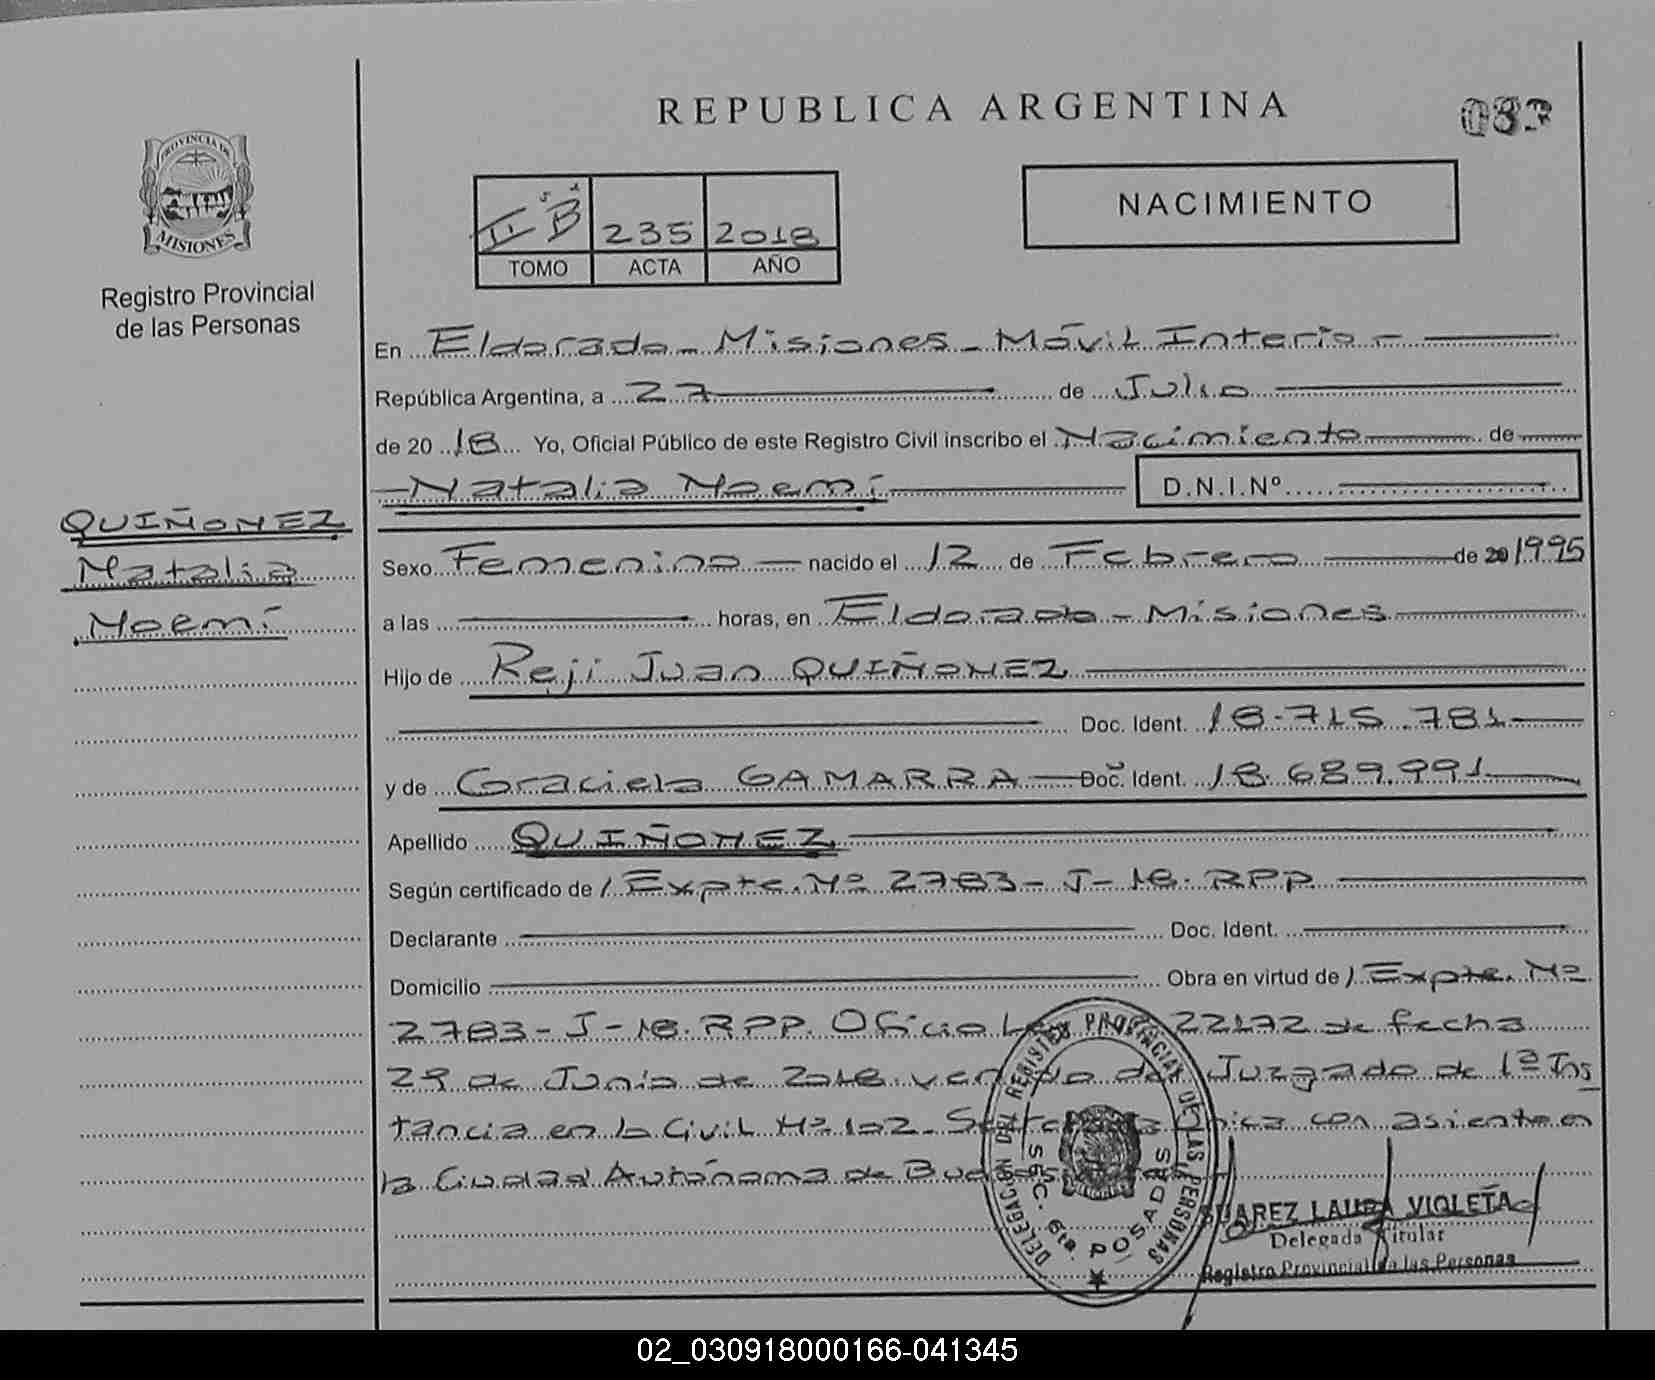 REPUBLICA ARGENTINA
033
PROVINCIA DE
MISIONES
Registro Provincial
de las Personas
NACIMIENTO
II B 235 2018
TOMO ACTA AÑO
En Eldorado - Misiones - Móvil Interio -
República Argentina, a 27 de Julio
de 2018 Yo, Oficial Público de este Registro Civil inscribo el Nacimiento de
Natalia Noemí D.N.I.Nº
QUIÑONEZ
Natalia
Noemí
Sexo Femenino nacido el 12 de Febrero de 20 1995
a las horas, en Eldorado - Misiones
Hijo de Reji Juan QUIÑONEZ
Doc. Ident. 18.715.781
y de Graciela GAMARRA Doc. Ident. 18.689.991
Apellido QUIÑONEZ
Según certificado de / Expte. Nº 2783 - J - 18. RPP
Declarante Doc. Ident.
Domicilio Obra en virtud de / Expte. Nº
2783 - J - 18. RPP. Oficio Ley 22172 de fecha
29 de Junio de 2018. venido del Juzgado de 1ª Ins
tancia en lo Civil Nº 102 - Secretaría Única con asiento en
la Ciudad Autónoma de Buenos Aires
DELEGACION DEL REGISTRO PROVINCIAL DE LAS PERSONAS
SEC. 6ta. POSADAS
SUAREZ LAURA VIOLETA
Delegada Titular
Registro Provincial de las Personas
02_030918000166-041345